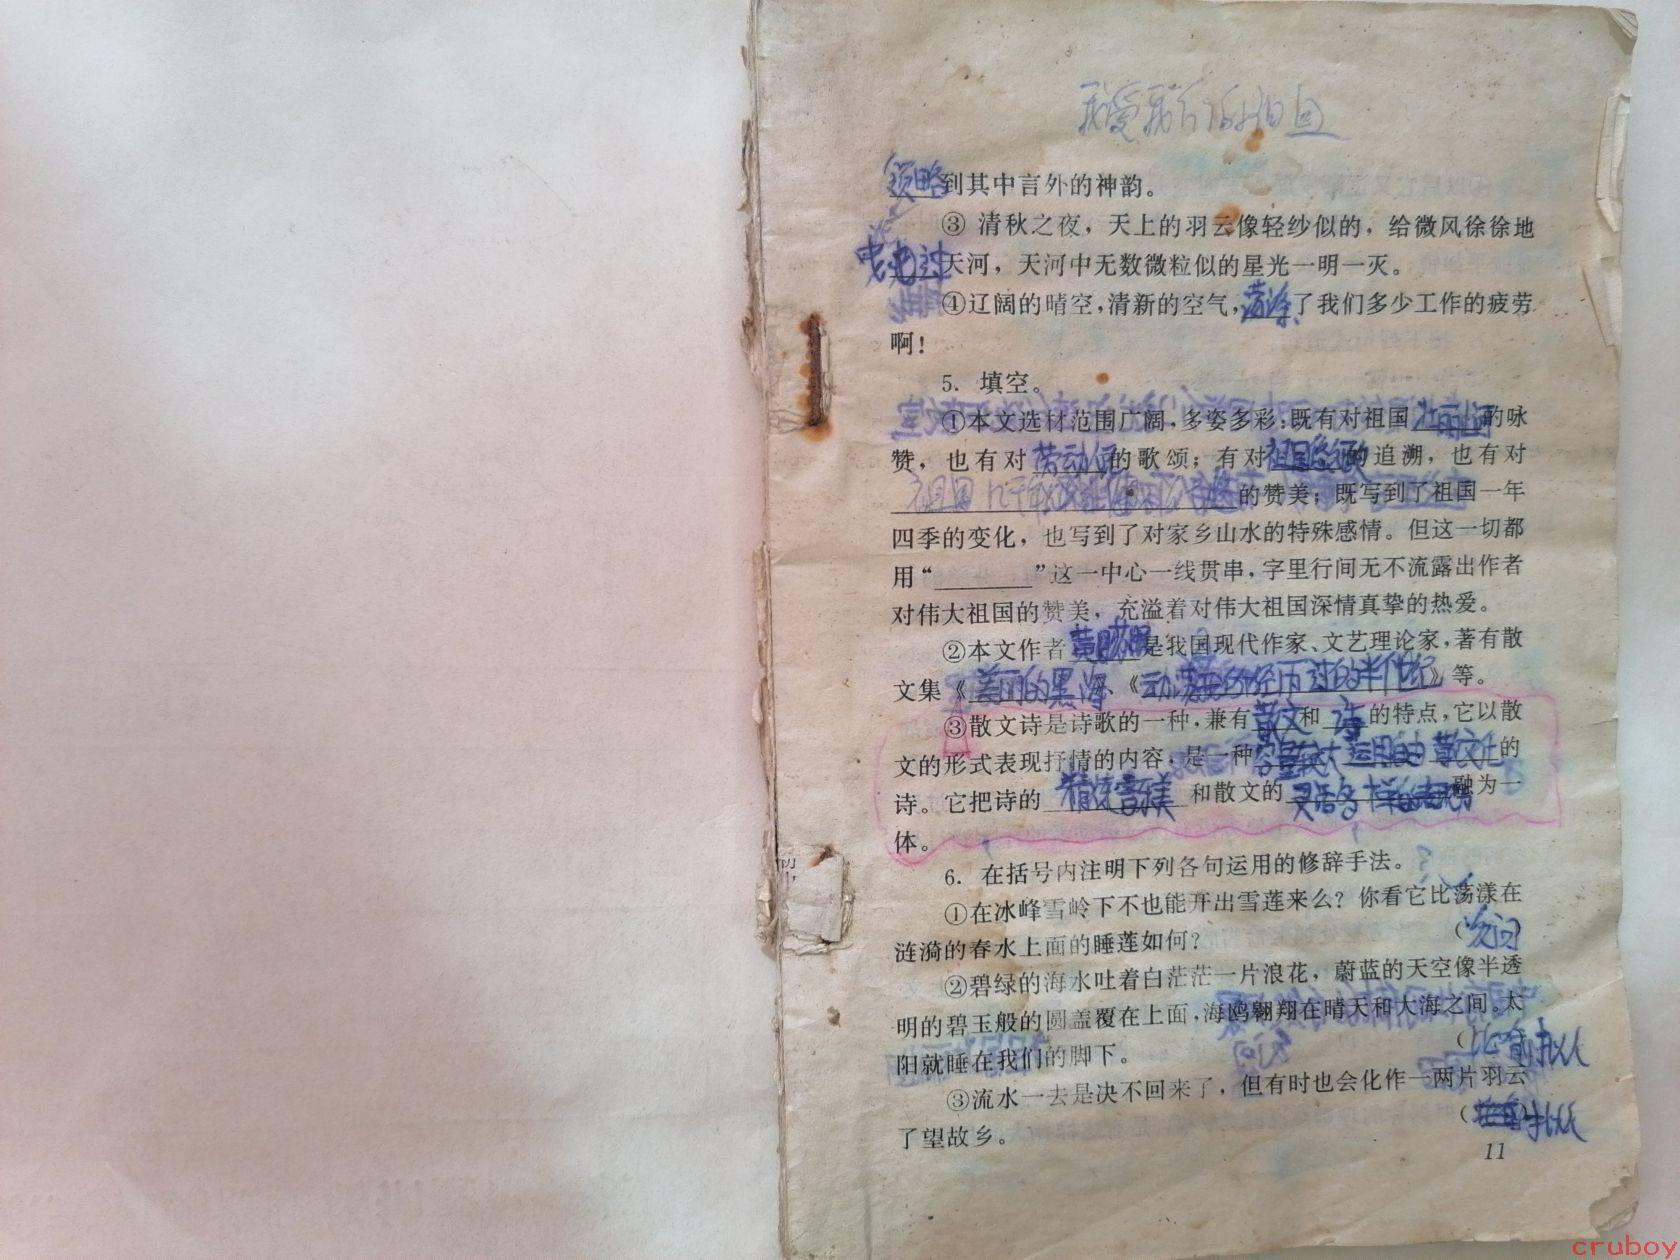 我爱我们的祖国
领略到其中言外的神韵。
③ 清秋之夜，天上的羽云像轻纱似的，给微风徐徐地
天河，天河中无数微粒似的星光一明一灭。
④辽阔的晴空，清新的空气，荡涤了我们多少工作的疲劳
啊！
5. 填空。
①本文选材范围广阔，多姿多彩；既有对祖国 的咏
赞，也有对劳动人民的歌颂；有对祖国 的追溯，也有对
祖国几千年 的赞美；既写到了祖国一年
四季的变化，也写到了对家乡山水的特殊感情。但这一切都
用“________”这一中心一线贯串，字里行间无不流露出作者
对伟大祖国的赞美，充溢着对伟大祖国深情真挚的热爱。
②本文作者黄药眠是我国现代作家、文艺理论家，著有散
文集《美丽的黑海》、《动荡：我所经历的半个世纪》等。
③散文诗是诗歌的一种，兼有散文和诗的特点，它以散
文的形式表现抒情的内容，是一种 散文化的
诗。它把诗的精练 和散文的 融为一
体。
6. 在括号内注明下列各句运用的修辞手法。
①在冰峰雪岭下不也能开出雪莲来么？你看它比荡漾在
涟漪的春水上面的睡莲如何？ （反问）
②碧绿的海水吐着白茫茫一片浪花，蔚蓝的天空像半透
明的碧玉般的圆盖覆在上面，海鸥翱翔在晴天和大海之间。太
阳就睡在我们的脚下。 （比喻 拟人
③流水一去是决不回来了，但有时也会化作一两片羽云
了望故乡。 （ ）拟人
11
cruboy